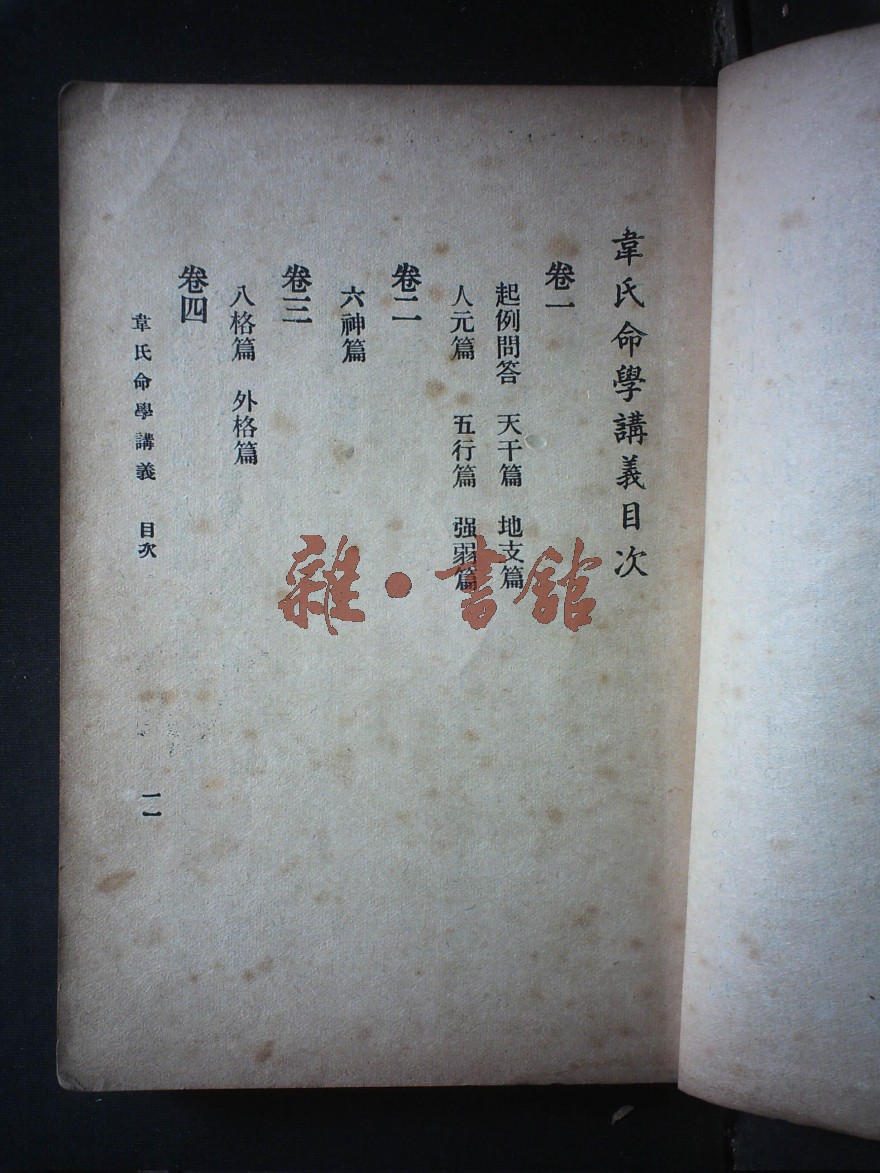 韋氏命學講義目次
卷一
起例問答　天干篇　地支篇
人元篇　五行篇　强弱篇
卷二
六神篇
卷三
八格篇　外格篇
卷四
韋氏命學講義　目次
雜・書館